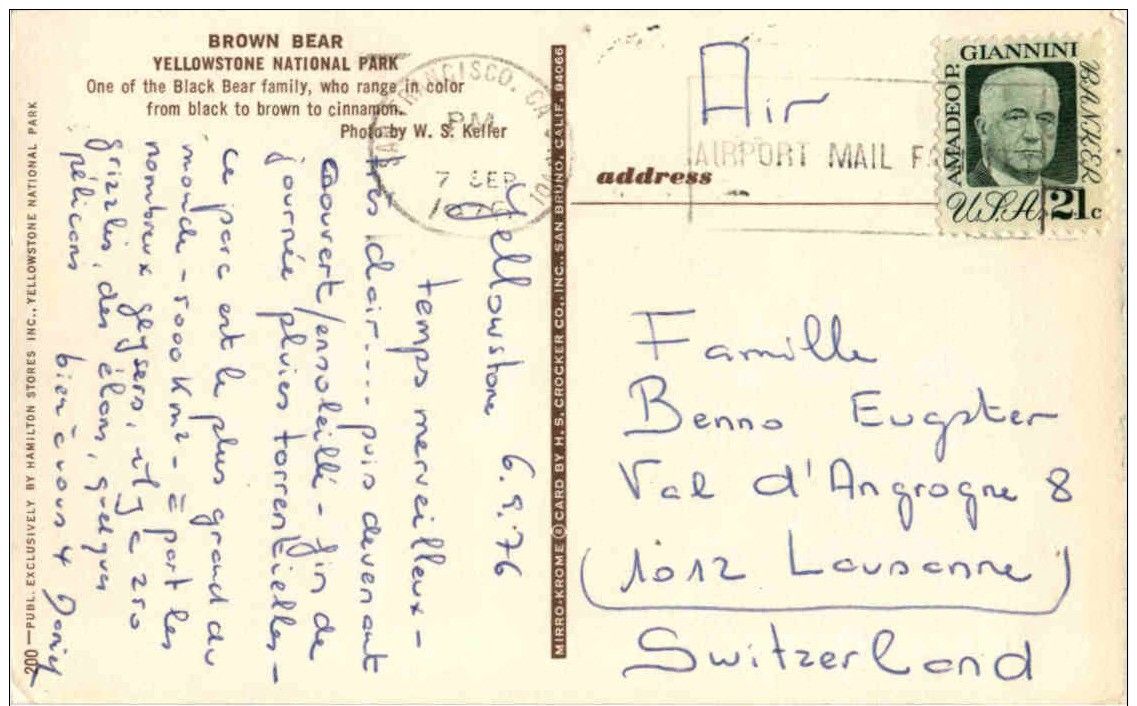 BROWN BEAR
YELLOWSTONE NATIONAL PARK
One of the Black Bear family, who range in color
from black to brown to cinnamon.
Photo by W. S. Keller
200—PUBL. EXCLUSIVELY BY HAMILTON STORES INC., YELLOWSTONE NATIONAL PARK
Yellowstone 6.9.76
temps merveilleux -
très clair.... puis devenant
couvert/ensoleillé - fin de
journée pluies torrentielles -
ce parc est le plus grand du
monde - 5000 Km2 - à part les
nombreux geysers, il y a 250
grizzlis, des élans, quelques
pélicans
bien à vous 4
MIRRO-KROME ® CARD BY H. S. CROCKER CO., INC., SAN BRUNO, CALIF. 94066
FRANCISCO, CA
PM
7 SEP
AIRPORT MAIL
Air
address
AMADEO P. GIANNINI
BANKER
U.S.A. 21c
Famille
Benno Eugster
Val d'Angrogne 8
(1012 Lausanne)
Switzerland